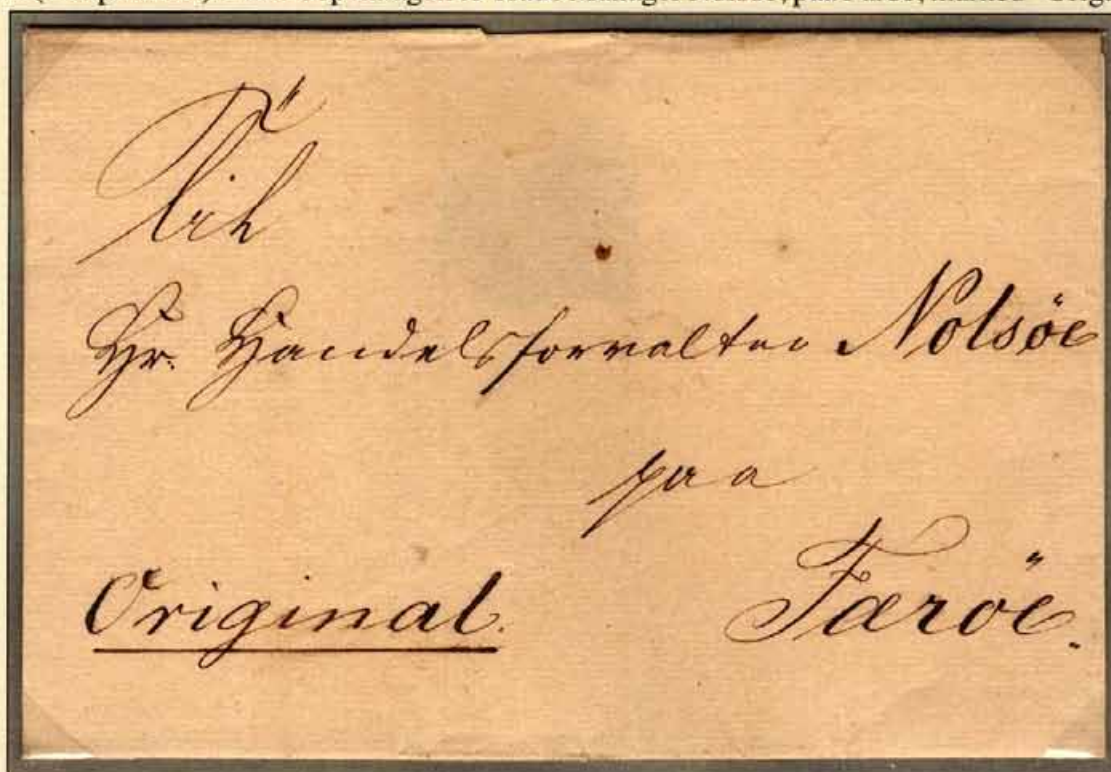 Til
Hr. Handelsforvalter Nolsöe
paa
Original. Færöe.